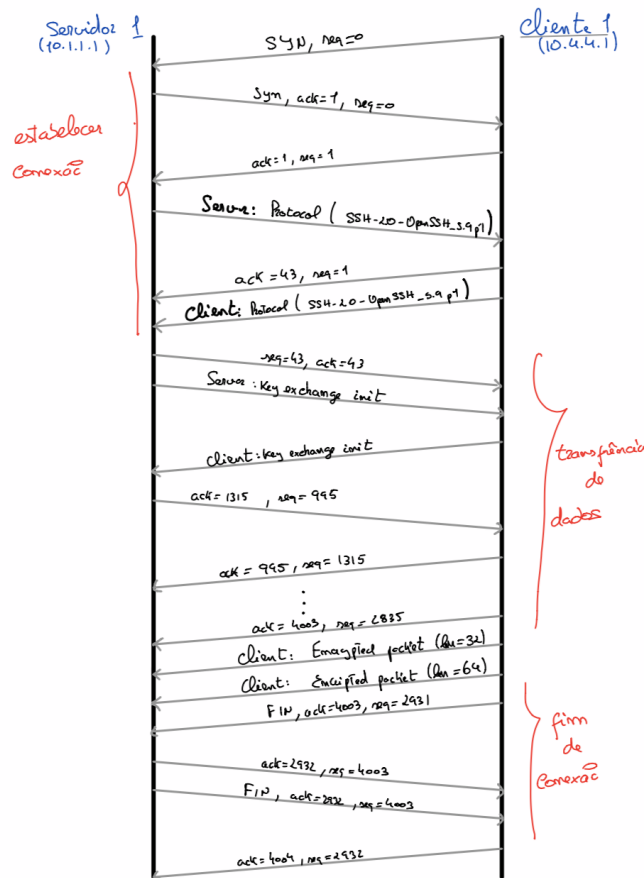 Servidor 1
(10.1.1.1)
Cliente 1
(10.4.4.1)
SYN, seq=0
Syn, ack=1, seq=0
ack=1, seq=1
estabelecer
conexão
Server: Protocol ( SSH-2.0-OpenSSH_5.9p1)
ack=43, seq=1
Client: Protocol ( SSH-2.0-OpenSSH_5.9p1)
seq=43, ack=43
Server: Key exchange init
Client: Key exchange init
ack=1315, seq=995
transfrência
de
dados
ack=995, seq=1315
ack=4003, seq=2835
Client: Encrypted packet (len=32)
Client: Encripted packet (len=64)
FIN, ack=4003, seq=2931
fim
de
conexão
ack=2932, seq=4003
FIN, ack=2932, seq=4003
ack=4004, seq=2932